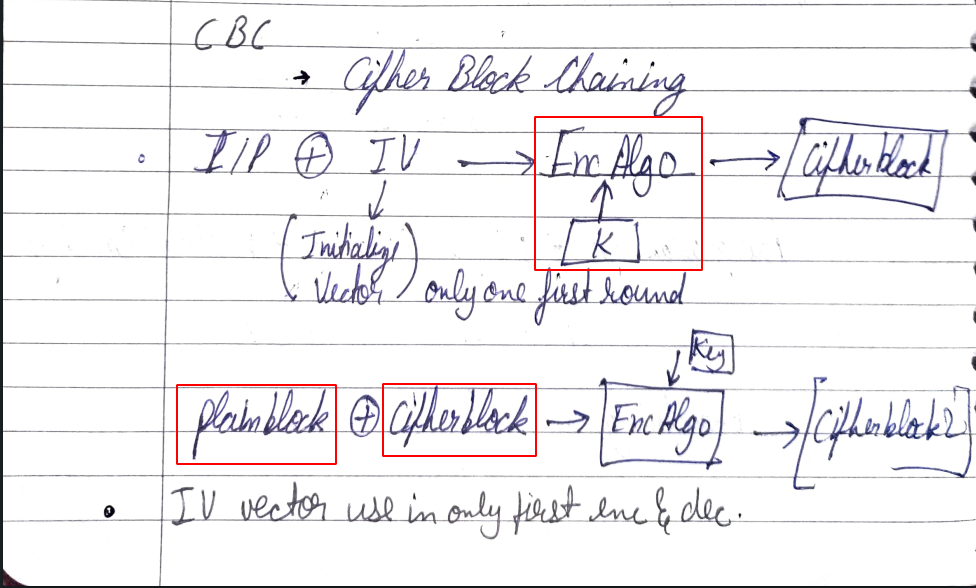 CBC
→ Cipher Block Chaining
I/P ⊕ IV → Enc Algo → Cipherblock
K
(Initialize
Vector) only one first round
Key
plainblock ⊕ Cipherblock → Enc Algo → Cipherblock2
• IV vector use in only first enc & dec.